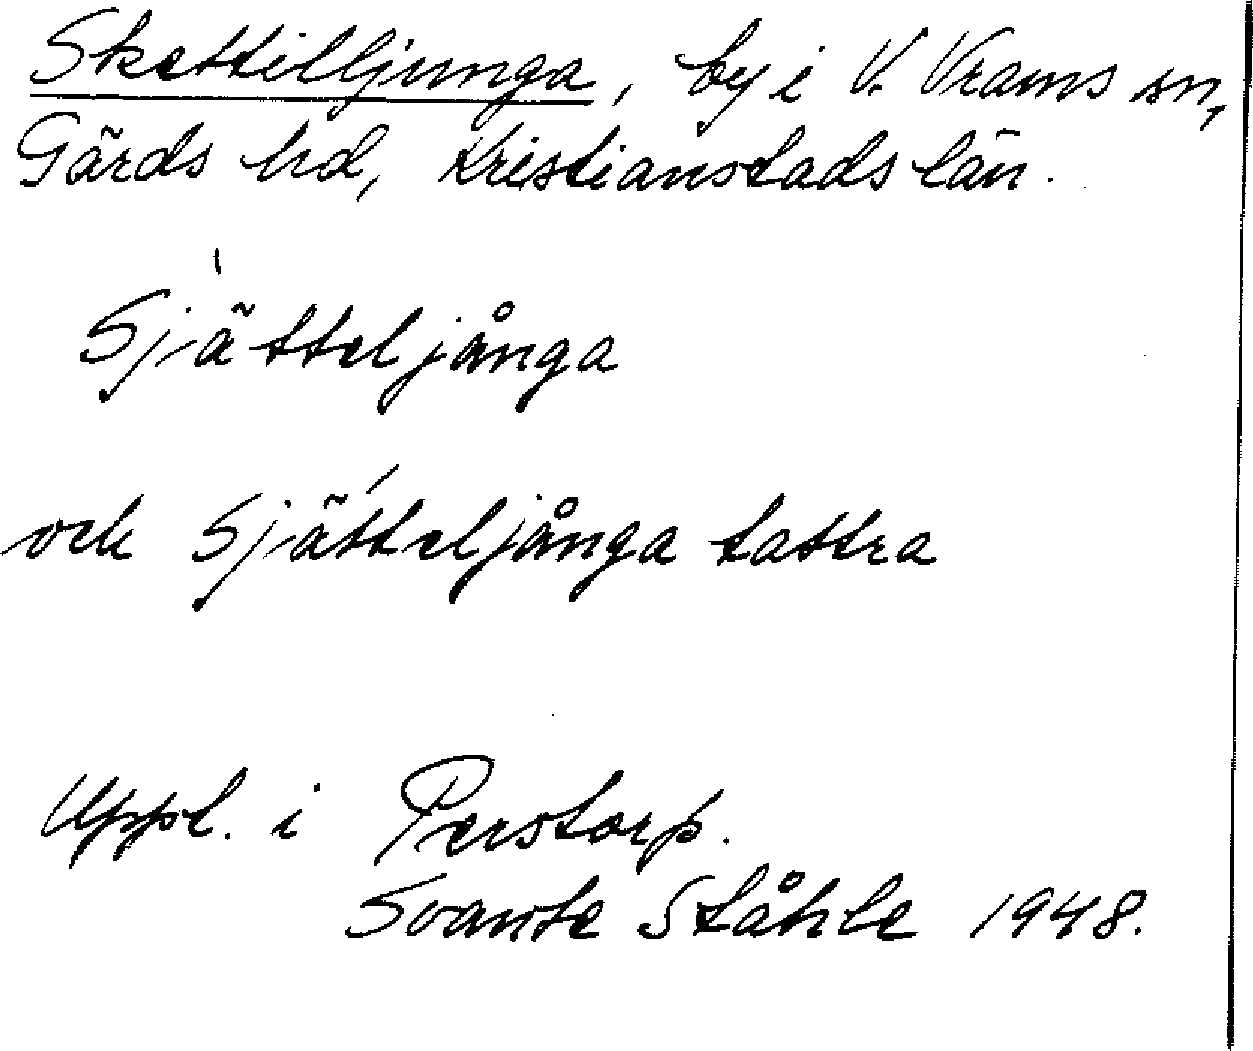 Skettilljunga, by i V. Vrams sn,
Gärds hd, Kristianstads län.
Sjätteljånga
och Sjätteljånga tattra
Uppl. i Perstorp.
Svante Ståhle 1948.